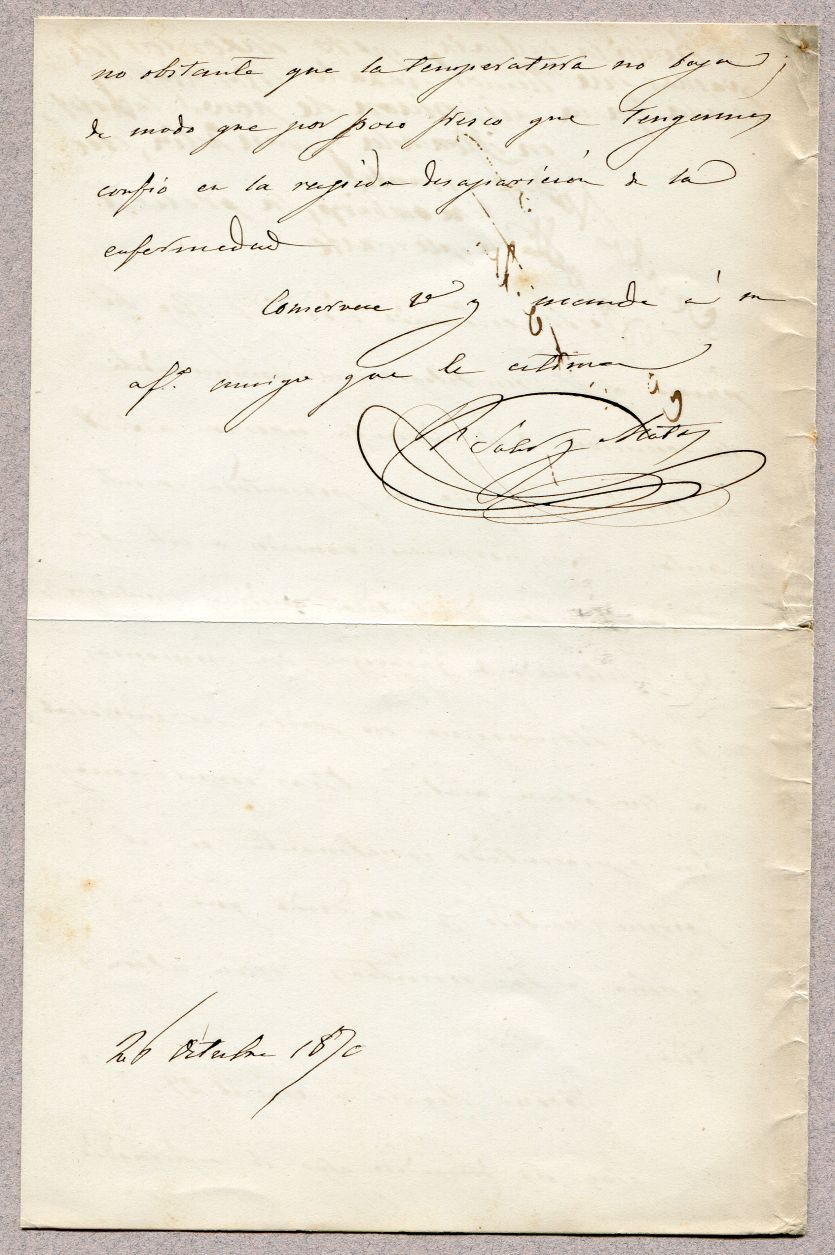 no obstante que la temperatura no baja;
de modo que por poco fresco que tengamos
confio en la rapida desaparición de la
enfermedad
Conservese Vd y mande á su
afº. amigo que le estima
y Mata
26 Octubre 1870